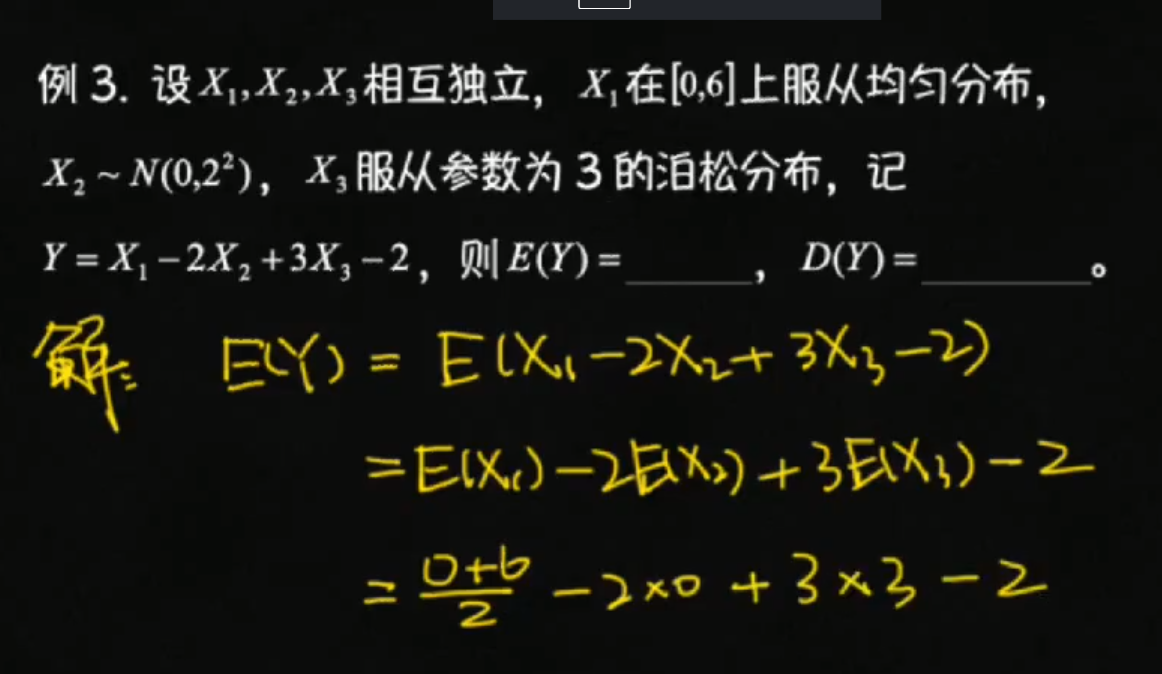 例 3. 设 X₁,X₂,X₃相互独立, X₁在[0,6]上服从均匀分布,
X₂ ~ N(0,2²), X₃服从参数为 3 的泊松分布, 记
Y = X₁ − 2X₂ + 3X₃ − 2, 则 E(Y) = ______, D(Y) = ______。
解: E(Y) = E(X₁ − 2X₂ + 3X₃ − 2)
= E(X₁) − 2E(X₂) + 3E(X₃) − 2
= (0+6)/2 − 2×0 + 3×3 − 2